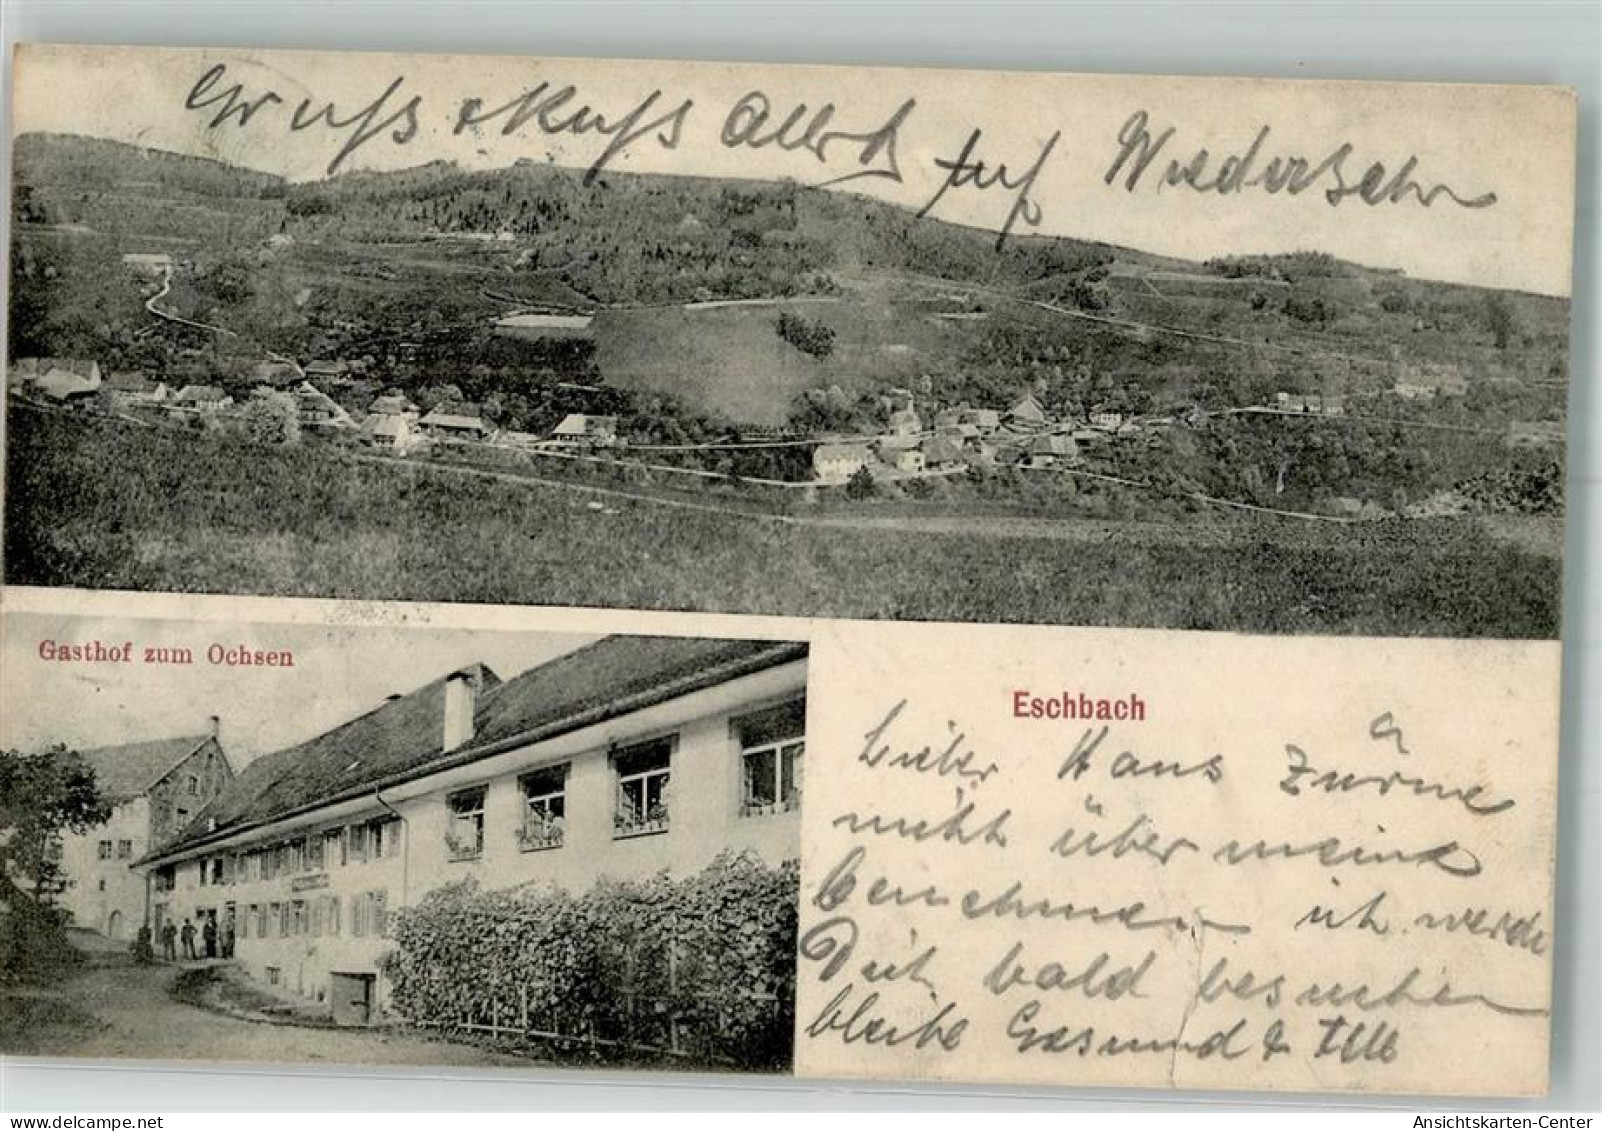 Gruss & Kuss Albert auf Wiedersehn
Gasthof zum Ochsen
Eschbach
Lieber Hans Zürne
nicht über meine
benehmen ich werde
Dich bald besuchen
bleibe Gesund &
Ansichtskarten-Center